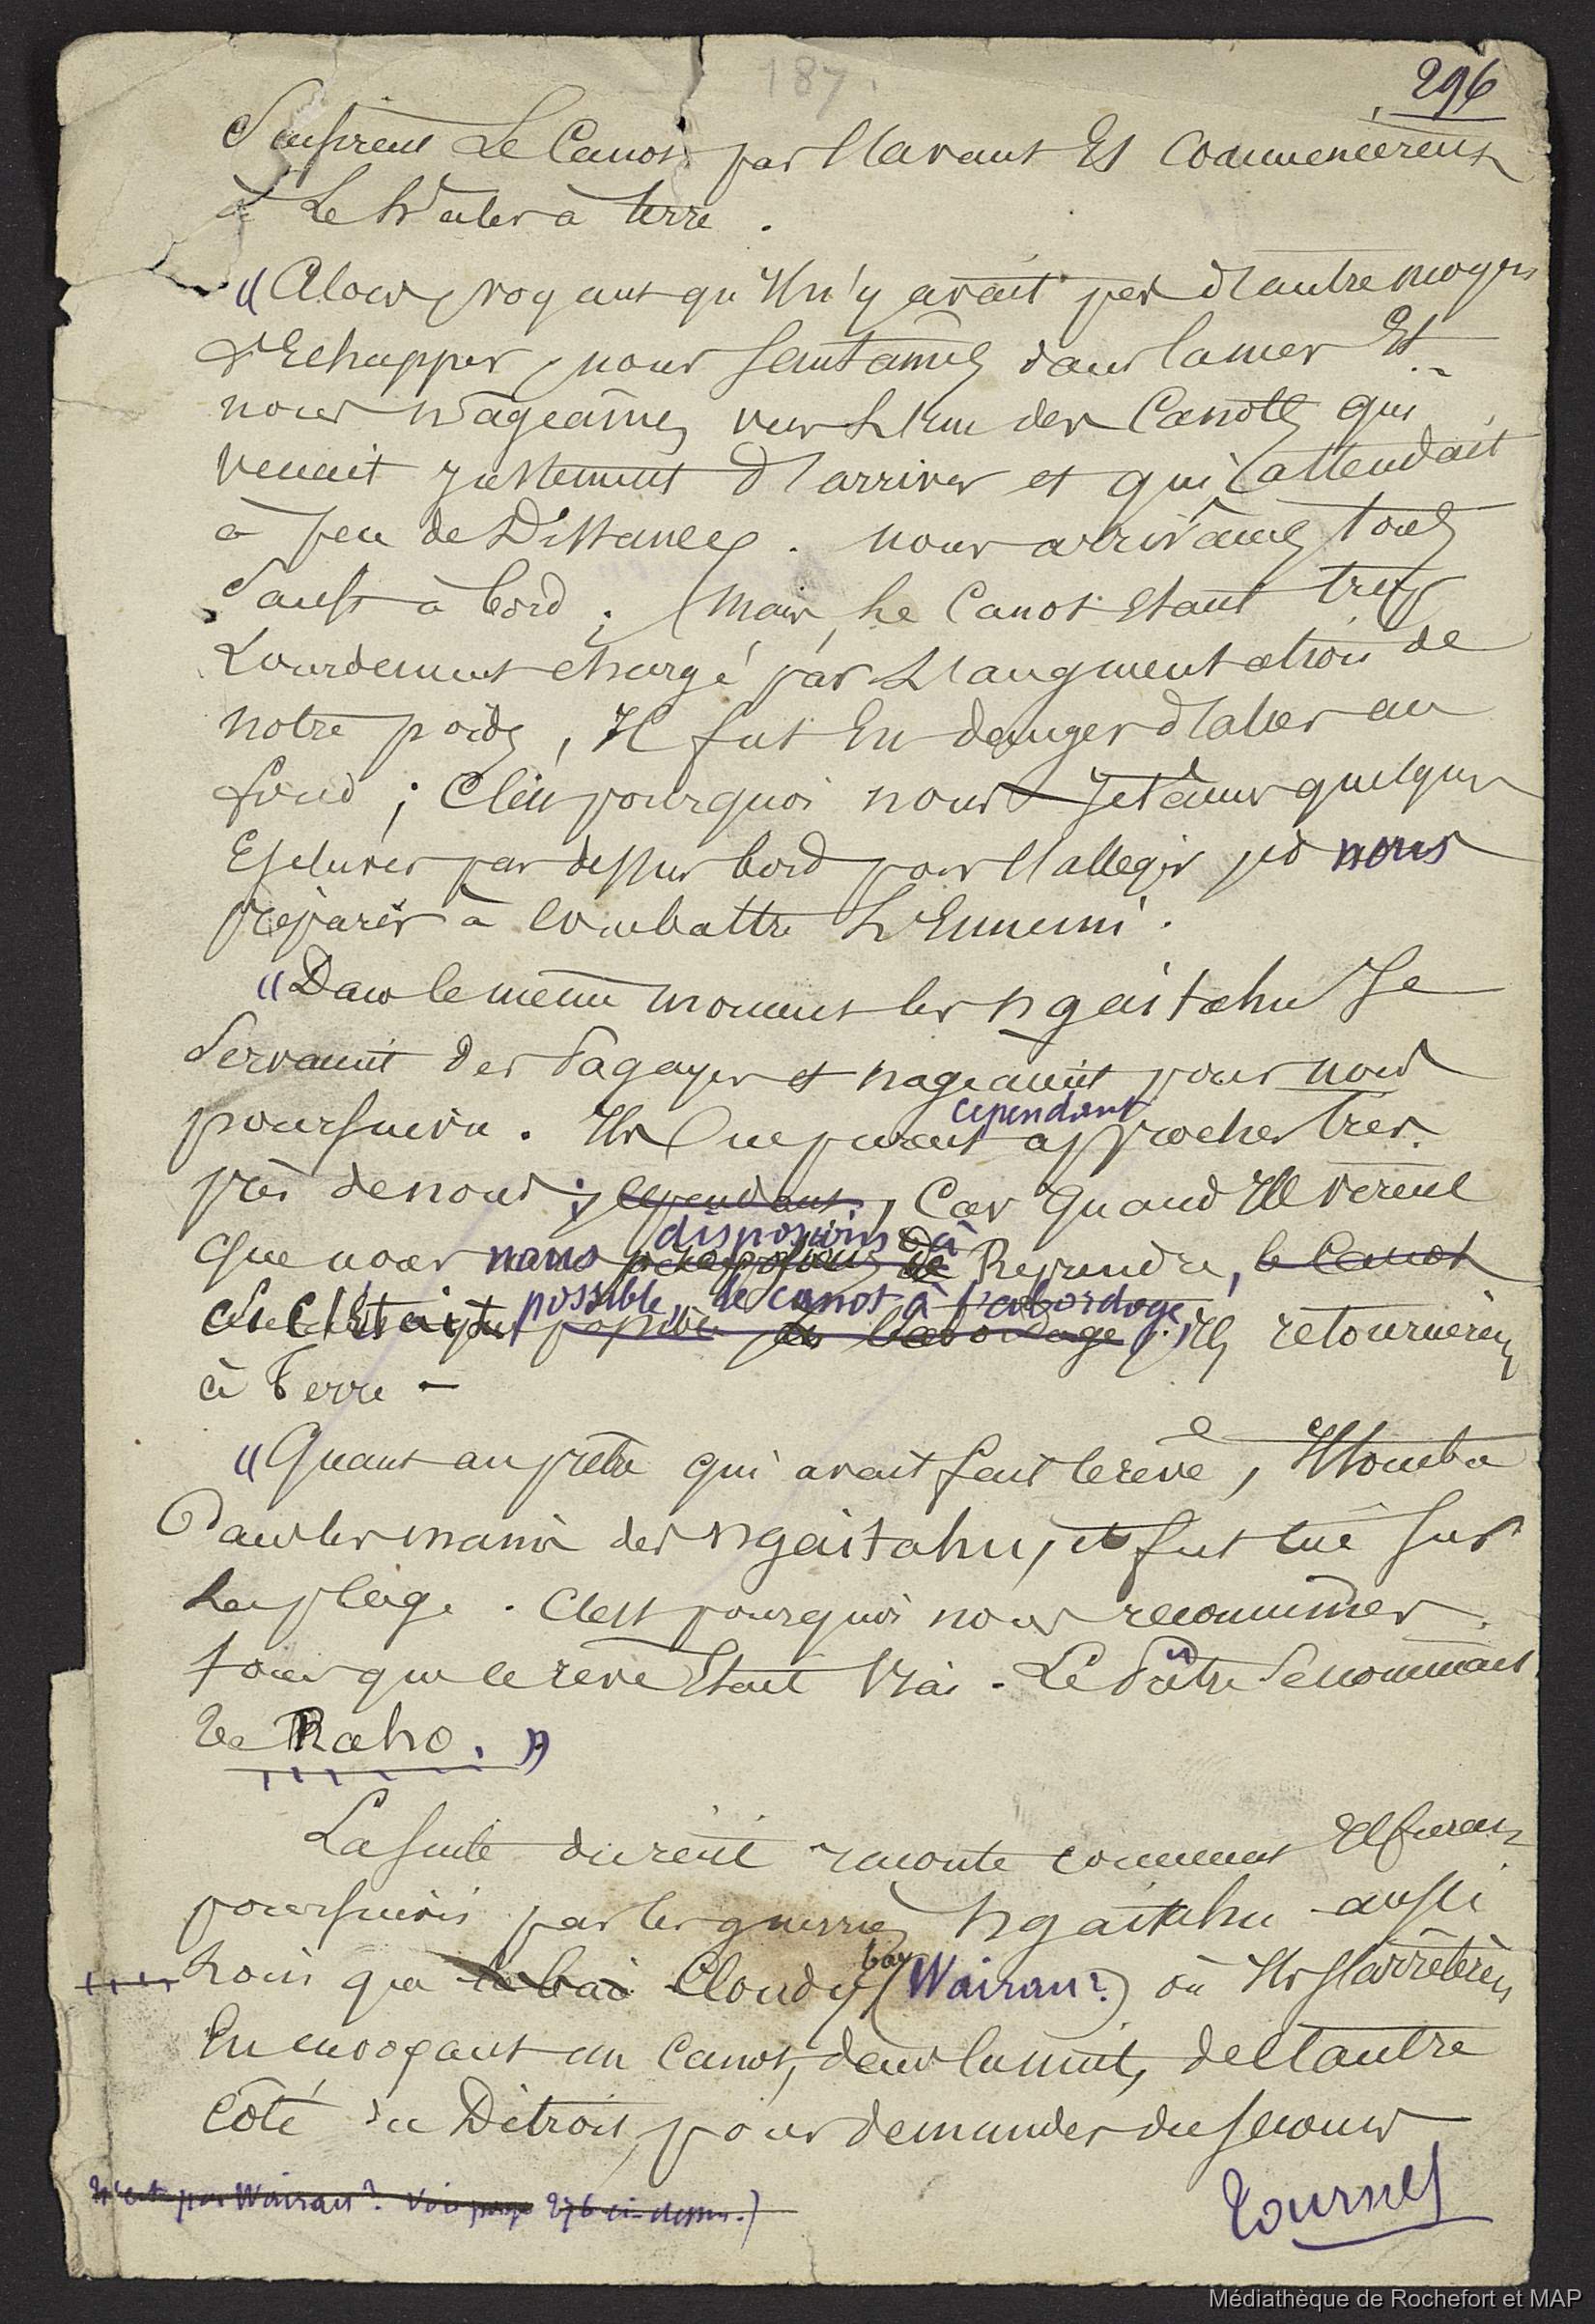 187.
296
Saisirent Le Canot par l'avant Et Commencerent
à Le haler à terre.
"Alors, voyant qu'Il n'y avait pas d'autre moyen
d'Echapper, nous Sautâmes dans la mer Et
nous nâgeâmes vers L'un des Canots qui
venait justement d'arriver et qui attendait
à peu de Distance. nous arrivâmes tous
Saufs à bord; Mais, Le Canot Etant trop
Lourdement chargé par L'augmentation de
notre poids, Il fut En danger d'aller au
fond; C'est pourquoi nous Jetâmes quelques
Esclaves par dessus bord pour l'alleger et nous
préparer à combattre L'Ennemi.
"Dans le même moment les ngaitahu Se
Servaient des Pagayes et nageaient pour nous
poursuivre. Ils ne purent cependant approcher très
près de nous; cependant, Car quand Ils virent
que nous nous disposions à Reprendre, le Canot
si c'Etait possible, le canot à l'abordage, Ils retournèrent
à Terre –
"Quant au prêtre qui avait fait le rêve, Il tomba
Dans les mains des ngaitahu, et fut tué Sur
La plage. C'est pourquoi nous reconnûmes
tous que le rêve Etait Vrai. Le Prêtre Se nommait
Te Raho. "
La suite du récit raconte comment Ils furent
poursuivis par les guerriers ngaitahu aussi
Loin que la baie Cloudy bay (Wairau?) où Ils s'arrêtèrent
En envoyant un Canot, dans la nuit, de l'autre
côté du Détroit, pour demander du secours
n'est pas Wairau? Voir page 276 ci-dessus.)
Tournez
Médiathèque de Rochefort et MAP